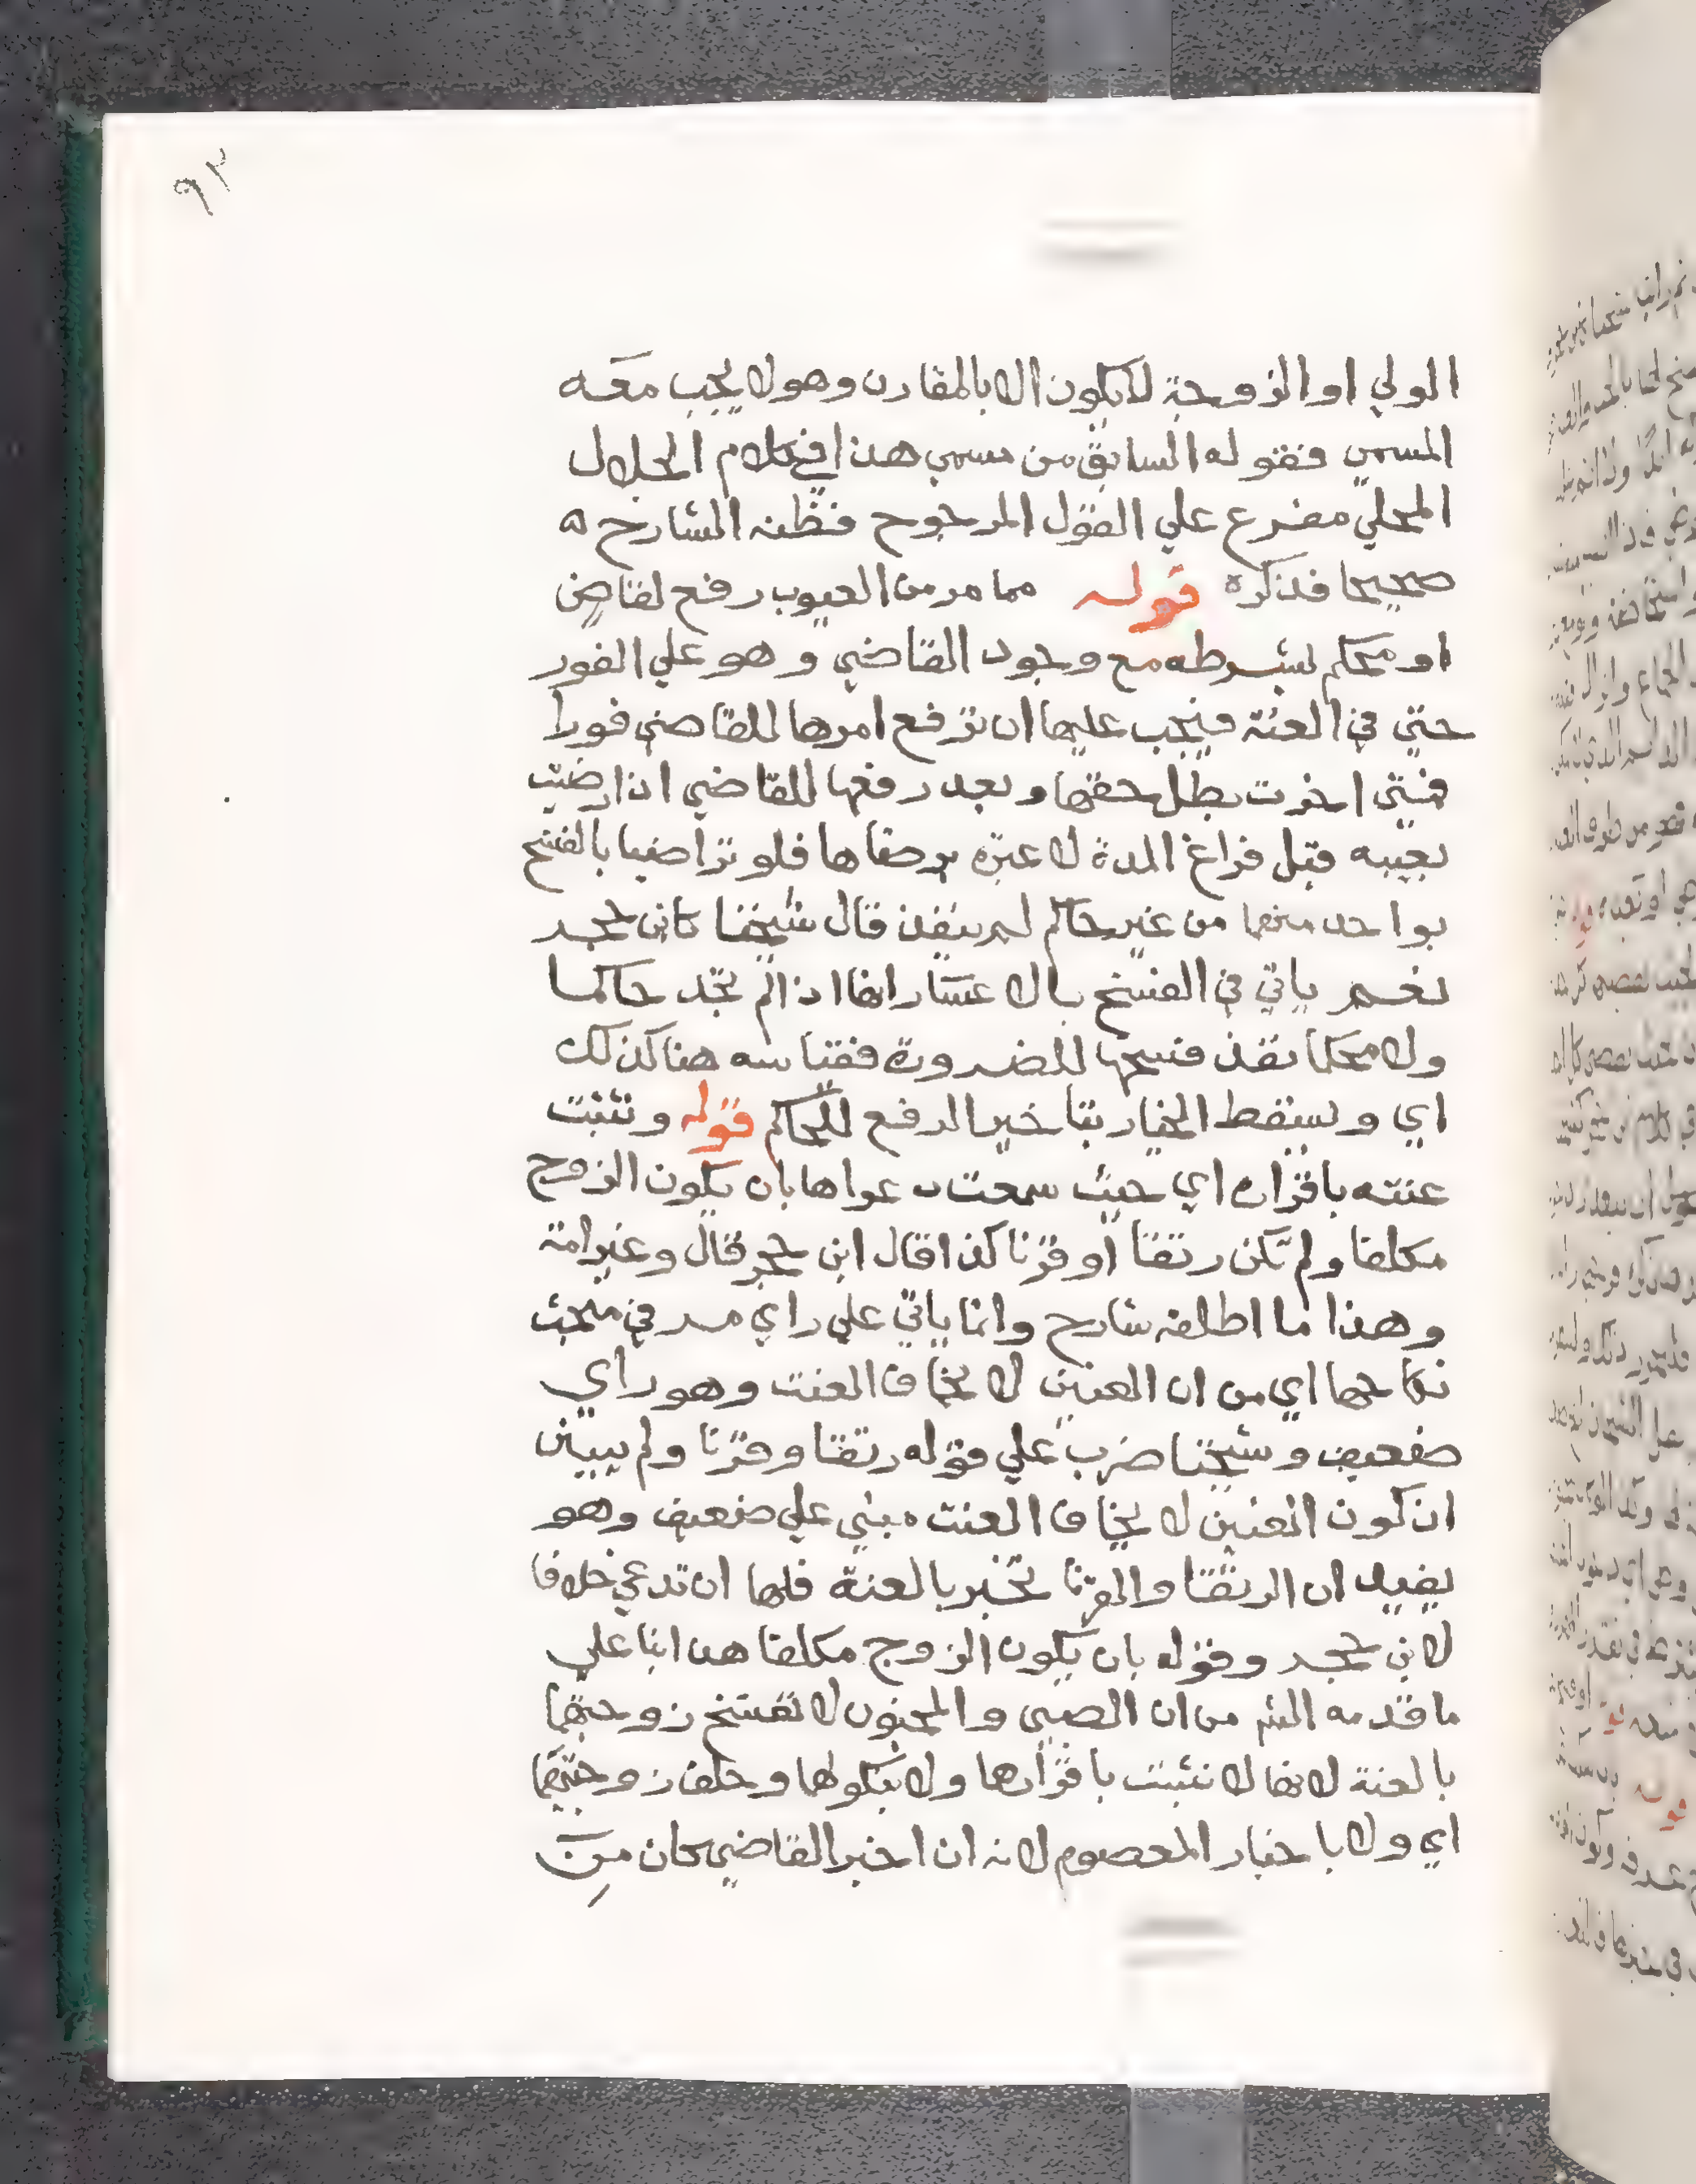 ٩٢
الولي او الزوجة لا يكون الا بالمقارن وهو لا يجب معه
المسمي فقوله السابق من مسمي هذا في كلام الجلال
المحلي مفرع علي القول المرجوح فظنه الشارح ه
صحيحا فذكره قوله مما مر من العيوب رفع لقاض
او محكم بشرطه مع وجود القاضي وهو علي الفور
حتي في العنة فيجب عليها ان ترفع امرها للقاضي فورا
فمتي اخرت بطل حقها وبعد رفعها للقاضي اذا رضيت
بعيبه قبل فراغ المدة لا عبرة برضاها فلو تراضيا بالفسخ
بواحد منهما من غير حاكم لم ينفذ قال شيخنا كابن حجر
نعم ياتي في الفسخ بالاعسار انها اذا لم تجد حاكما
ولا محكما نفذ فسخها للضرورة فقياسه هنا كذلك
اي ويسقط الخيار بتاخير الرفع للحاكم قوله وتثبت
عنته باقراره اي حيث سمعت دعواها بان يكون الزوج
مكلفا ولم تكن رتقا او قرنا كذا قال ابن حجر قال وغير امة
وهذا ما اطلقه شارح وانما ياتي علي راي مر في مبحث
نكاحها اي من ان العنين لا يخاف العنت وهو راي
ضعيف وشيخنا ضرب علي قوله رتقا وقرنا ولم يبين
ان كون العنين لا يخاف العنت مبني علي ضعيف وهو
يفيد ان الرتقا والقرنا تخير بالعنة فلها ان تدعي خلافا
لابن حجر وقوله بان يكون الزوج مكلفا هذا بنا علي
ما قدمه الشم من ان الصبي والمجنون لا تفسخ زوجتهما
بالعنة لانها لا تثبت باقرارها ولا بنكولها وحلف زوجتهما
اي ولا باخبار المعصوم لانه ان اخبر القاضي كان من